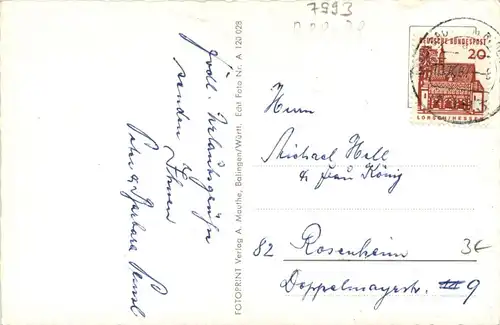 7993
DEUTSCHE BUNDESPOST
20
LORSCH/HESSEN
Frdl. Urlaubsgrüße
senden
Ihnen
Peter & Barbara
FOTOPRINT Verlag A. Mauthe, Balingen/Württ. Echt Foto Nr. A 120 028
Herrn
Michael Hell
& Frau König
82 Rosenheim
Doppelmayrstr. 9
3€